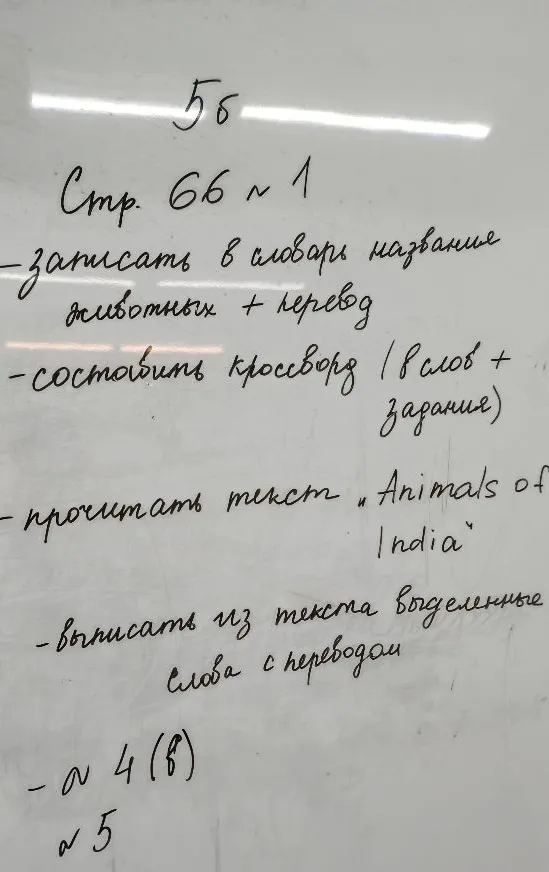 5б
Стр. 66 ~ 1
- записать в словарь название
животных + перевод
- составить кроссворд (8 слов +
задания)
- прочитать текст „Animals of
India"
- выписать из текста выделенные
слова с переводом
- ~ 4 (в)
~ 5